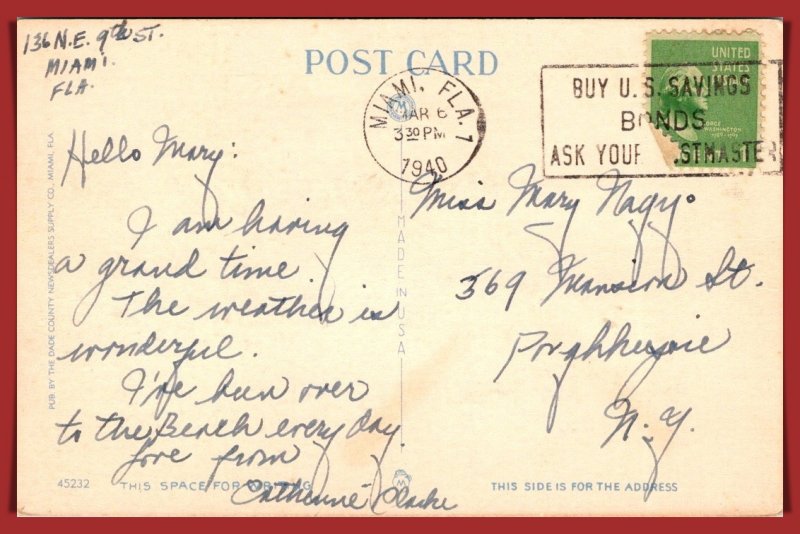 136 N.E. 9th ST.
MIAMI.
FLA.
POST CARD
MIAMI, FLA. 1
MAR 6
3 30 PM
1940
BUY U.S. SAVINGS
BONDS
ASK YOUR POSTMASTER
UNITED
STATES
WASHINGTON
Hello Mary:
I am having
a grand time.
The weather is
wonderful.
I've been over
to the Beach every day.
Love from
Catherine
Miss Mary Nagy.
369 Mansion St.
Poughkeepsie
N.Y.
MADE IN USA
PUB. BY THE DADE COUNTY NEWSDEALERS SUPPLY CO., MIAMI, FLA
45232
THIS SPACE FOR WRITING
THIS SIDE IS FOR THE ADDRESS